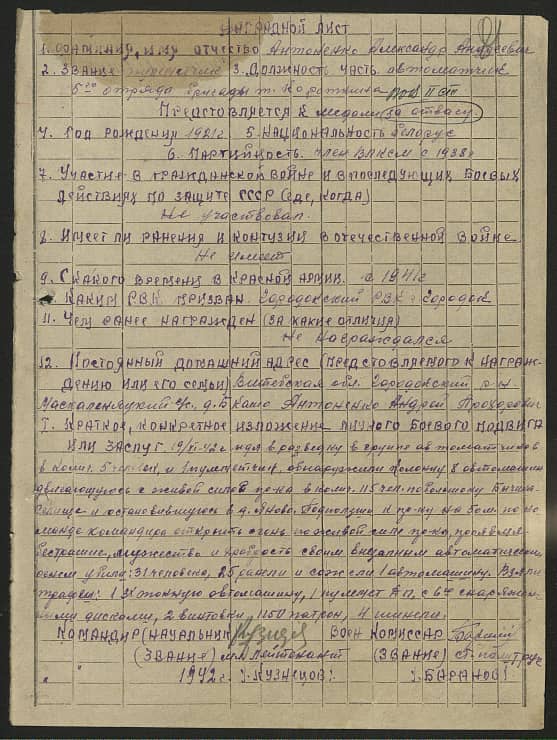 НАГРАДНОЙ ЛИСТ
1. Фамилия, имя отчество Антоненко Александр Андреевич
2. Звание 3. Должность часть автоматчик
5го отряда бригады т. Короткина
Представляется к медали за отвагу
4. Год рождения 1921г 5. Национальность белорус
6. Партийность. член ВЛКСМ с 1938г
7. Участие в гражданской войне и в последующих боевых
действиях по защите СССР (где, когда)
Не участвовал.
8. Имеет ли ранения и контузии в отечественной войне
Не имеет
9. С какого времени в Красной армии. с 1941г
Каким РВК призван. Городокский РВК г. Городок
11. Чем ранее награжден (за какие отличия)
Не награждался
12. Постоянный домашний адрес (представляемого к награж-
дению или его семьи) Витебская обл. Городокский р-н
с/с. д. Антоненко Андрей Прохорович
I. Краткое, конкретное изложение личного боевого подвига
или заслуг. 42г идя в разведку в группе автоматчиков
в колич. 5 человек, и 1 пулеметчик, обнаружили колонну 8 автомашин
двигающуюся с живой силой пр-ка в колич. 115 чел. по
и остановившуюся в д. Яново. к пр-ку на по ко-
манде командира открыть огонь по живой силе пр-ка, проявляя
бесстрашие, мужество и храбрость своим внезапным автоматическим
огнем убили: 31 человека, 25 ранили и сожгли 1 автомашину. Взяли
трофеи: 1 3х тонную автомашину, 1 пулемет с 6ю снаряжен-
ными дисками, 2 винтовки, 1150 патрон, 4 шинели.
Командир (начальник) Воен комиссар
(звание) мл. лейтенант (звание) ст. политрук
1942г. /Кузнецов/ /Баранов/